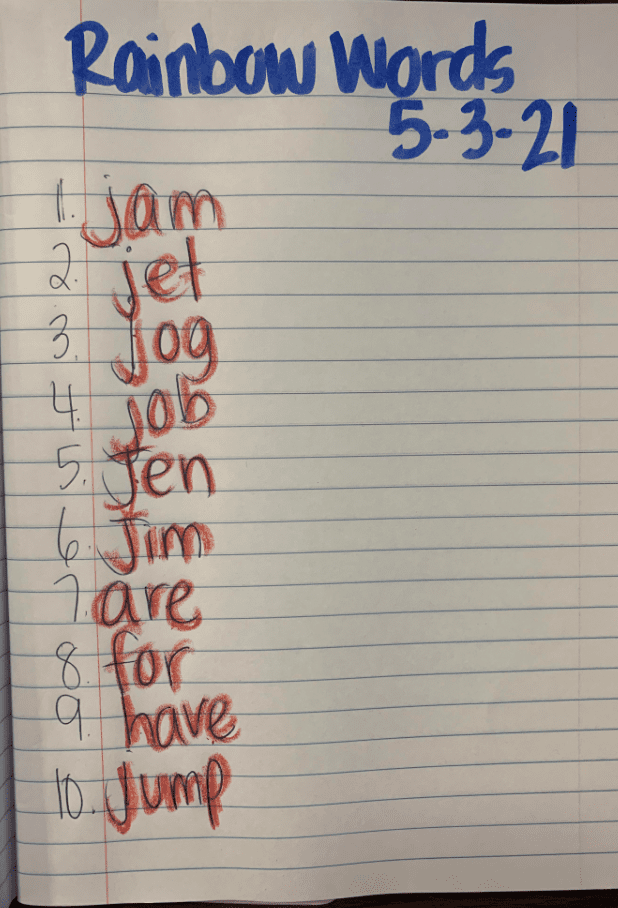 Rainbow Words
5-3-21
1. jam
2. jet
3. jog
4. job
5. Jen
6. Jim
7. are
8. for
9. have
10. jump